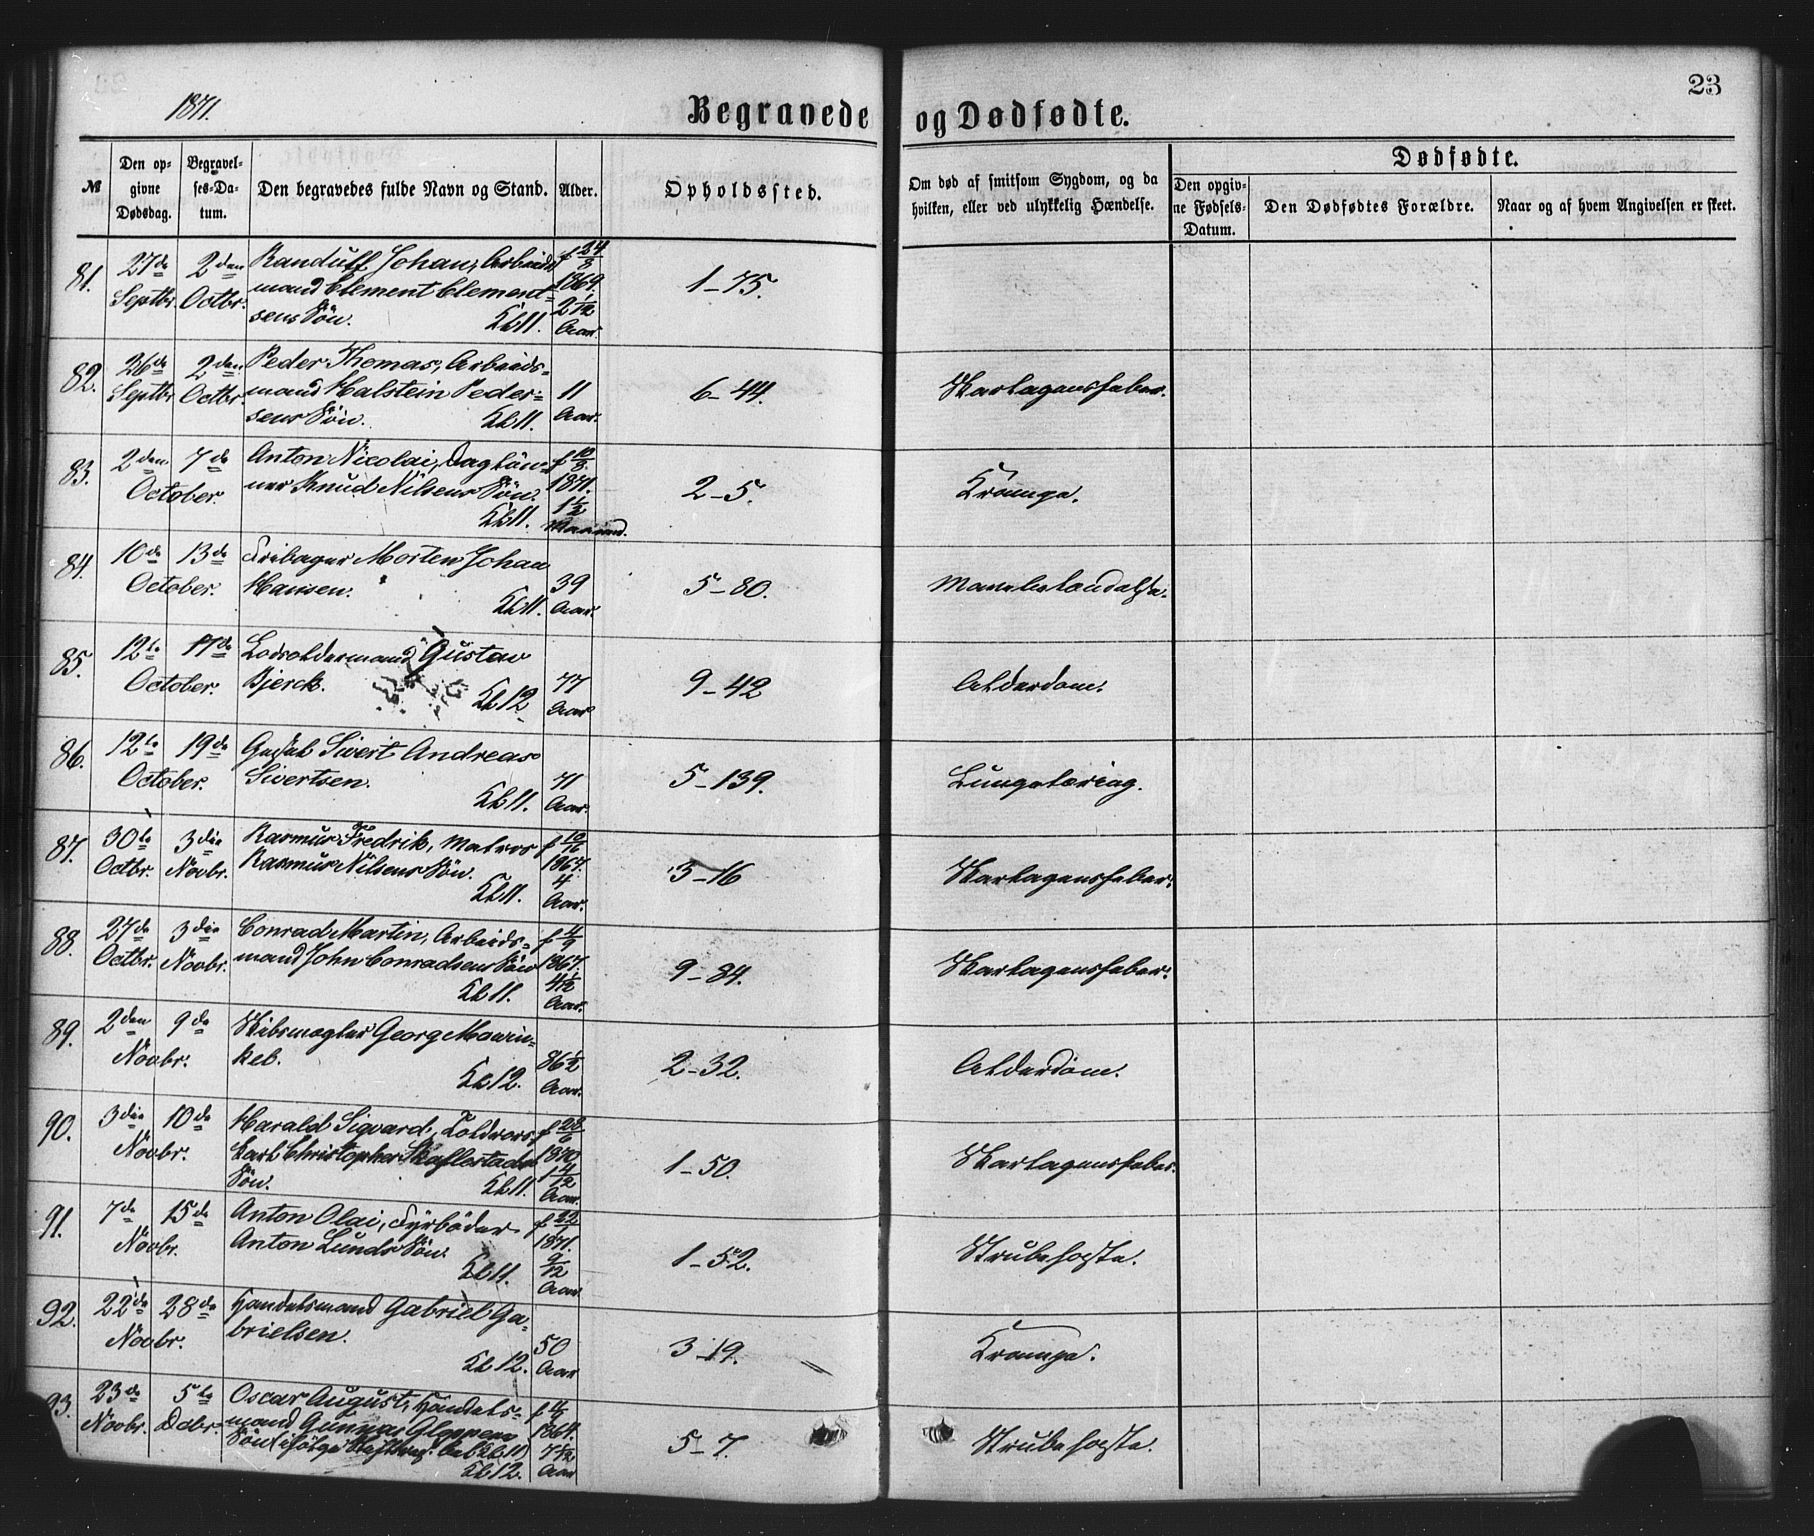 23
1871.
Begravede og Dødfødte.
№
Den opgivne Dødsdag.
Begravelses-Datum.
Den begravedes fulde Navn og Stand.
Alder.
Opholdssted.
Om død af smitsom Sygdom, og da hvilken, eller ved ulykkelig Hændelse.
Dødfødte.
Den opgivne Fødsels-Datum.
Den Dødfødtes Forældre.
Naar og af hvem Angivelsen er skeet.
81. 27de Septbr. 2den Octbr. Randulf Johan, Arbeids-
mand Clement Clement-
sens Søn. Kl 11.
f 24/8 1869. 2 1/12 Aar.
1-75.
82. 26de Septbr 2den Octbr. Peder Thomas, Arbeids-
mand Halstein Peder-
sens Søn. Kl 11.
11 Aar.
6-44.
Skarlagensfeber.
83. 2den 7de October. Anton Nicolai, Dagløn-
ner Knud Nilsens Søn.
Kl 11.
f 10/8 1871. 1 1/2 Maaned.
2-5.
Krampe.
84. 10de 13de October. Morten Johan
Hansen. Kl 11.
39 Aar.
5-80.
85. 12te 17de October. Lodsoldermand Gustav
Bjerck. Kl 12.
77 Aar
9-42
Alderdom.
86. 12te 19de October. Sivert Andreas
Sivertsen. Kl 11.
71 Aar.
5-139.
Lungetæring.
87. 30te Octbr. 3die Novbr. Rasmus Fredrik, Matros
Rasmus Nilsens Søn.
Kl 11.
1867. 4 Aar.
3-16
Skarlagensfeber.
88. 27de Octbr. 3die Novbr. Conrad Martin, Arbeids-
mand John Conradsens Søn
Kl 11.
f 4/9 1867. Aar.
9-84.
Skarlagensfeber.
89. 2den 9de Novbr. Skibsmægler Georg Mowin-
kel. Kl 12.
86 1/2 Aar.
2-32.
Alderdom.
90. 3die 10de Novbr. Harald Sigvard, Toldrors-
Karl Christopher
Søn. Kl 11.
f 28/6 1870 1 4/12 Aar.
1-50.
Skarlagensfeber.
91. 7de 15de Novbr. Anton Olai, Fyrbøder
Anton Lunds Søn.
Kl 11.
1871. 9/12 Aar
1-52.
Strubehoste.
92. 22de 28de Novbr. Handelsmand Gabriel Ga-
brielsen. Kl 12.
50 Aar
3-19.
Krampe.
93. 23de Novbr. 5te Dcbr. Oscar August, Handels-
mand Gunnar Gloppens
Søn
Kl 12.
1864. Aar
5-7.
Strubehoste.